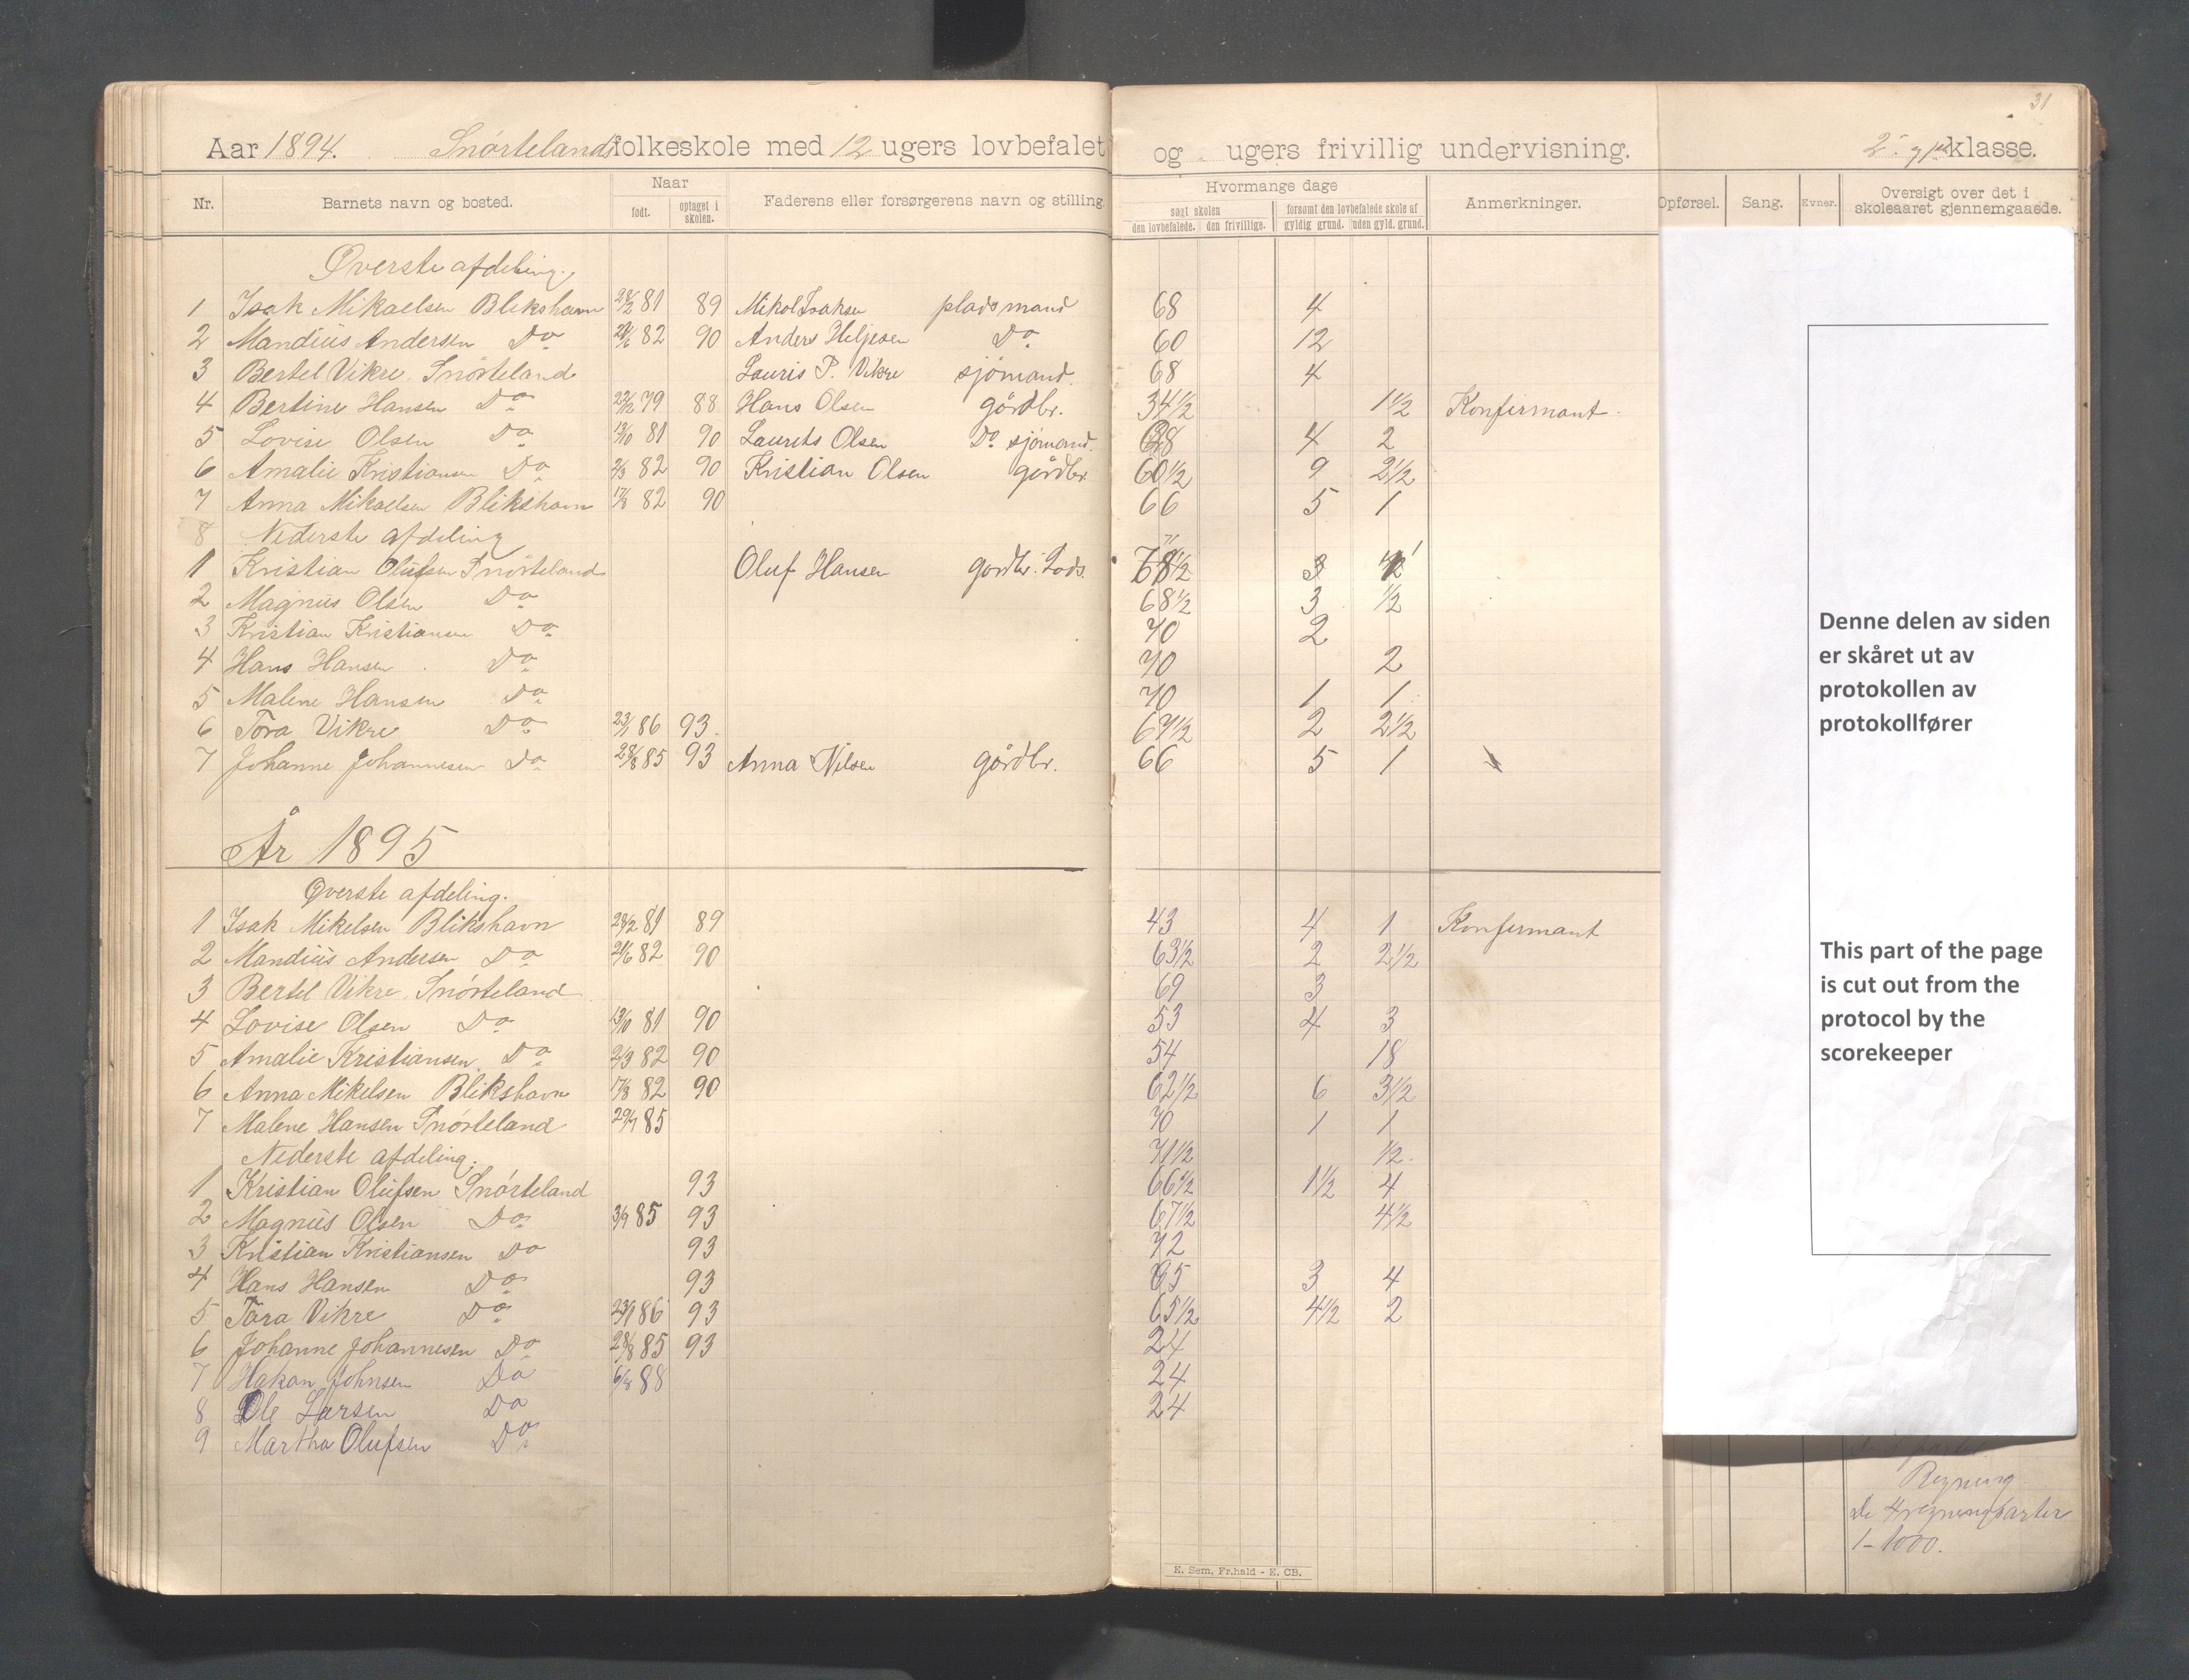 31
Aar 1894. Snørtelands folkeskole med 12 ugers lovbefalet og ugers frivillig undervisning. klasse.
Nr. Barnets navn og bosted. Naar født. optaget i skolen. Faderens eller forsørgerens navn og stilling. Hvormange dage søgt skolen den lovbefalede. den frivillige. forsømt den lovbefalede skole af gyldig grund. uden gyld. grund. Anmerkninger. Opførsel. Sang. Evner. Oversigt over det i skoleaaret gjennemgaaede.
Øverste afdeling.
1 Isak Mikaelsen Blikshavn 28/2 81 89 Mikal Isaksen pladsmand 68 4
2 Mandius Andersen Do 21/6 82 90 Anders Heljesen Do 60 12
3 Bertel Vikre Snørteland Lauris P. Vikre sjømand. 68 4
4 Bertine Hansen Do 22/12 79 88 Hans Olsen gårdbr. 34 1/2 1 1/2 Konfirmant.
5 Lovise Olsen Do 13/10 81 90 Laurits Olsen Do sjømand. 68 4 2
6 Amalie Kristiansen Do 2/3 82 90 Kristian Olsen gårdbr. 60 1/2 9 2 1/2
7 Anna Mikaelsen Blikshavn 17/8 82 90 66 5 1
8 Nederste afdeling
1 Kristian Olufsen Snørteland Oluf Hansen gardbr. Lods. 68 1/2 3
2 Magnus Olsen Do 68 1/2 3 1/2
3 Kristian Kristiansen Do 70 2
4 Hans Hansen Do 70 2
5 Malene Hansen Do 70 1 1
6 Tora Vikre Do 23/1 86 93. 67 1/2 2 2 1/2
7 Johanne Johannesen Do 28/8 85 93 Anna Nilsen gårdbr. 66 5 1
År 1895
Øverste afdeling.
1 Isak Mikelsen Blikshavn 28/2 81 89 43 4 1 Konfirmant
2 Mandius Andersen Do 21/6 82 90 63 1/2 2 2 1/2
3 Bertel Vikre Snørteland 69 3
4 Lovise Olsen Do 13/10 81 90 53 4 3
5 Amalie Kristiansen. Do 2/3 82 90 54 18
6 Anna Mikelsen Blikshavn 17/8 82 90 62 1/2 6 3 1/2
7 Malene Hansen Snørteland 29/7 85 70 1 1
Nederste afdeling. 71 1/2 1/2
1 Kristian Olufsen Snørteland 93 66 1/2 1 1/2 4
2 Magnus Olsen Do 3/9 85 93 67 1/2 4 1/2
3 Kristian Kristiansen Do 93 72
4 Hans Hansen Do 93 65 3 4
5 Tora Vikre Do 23/1 86 93 65 1/2 4 1/2 2
6 Johanne Johannesen Do 28/8 85 93 24
7 Hakan Johnsen Do 6/8 88 24
8 Ole Larsen Do 24
9 Martha Olufsen Do
Denne delen av siden
er skåret ut av
protokollen av
protokollfører
This part of the page
is cut out from the
protocol by the
scorekeeper
Regning
De 4 regningsarter
1-1000.
E. Sem, Fr.hald - E. CB.